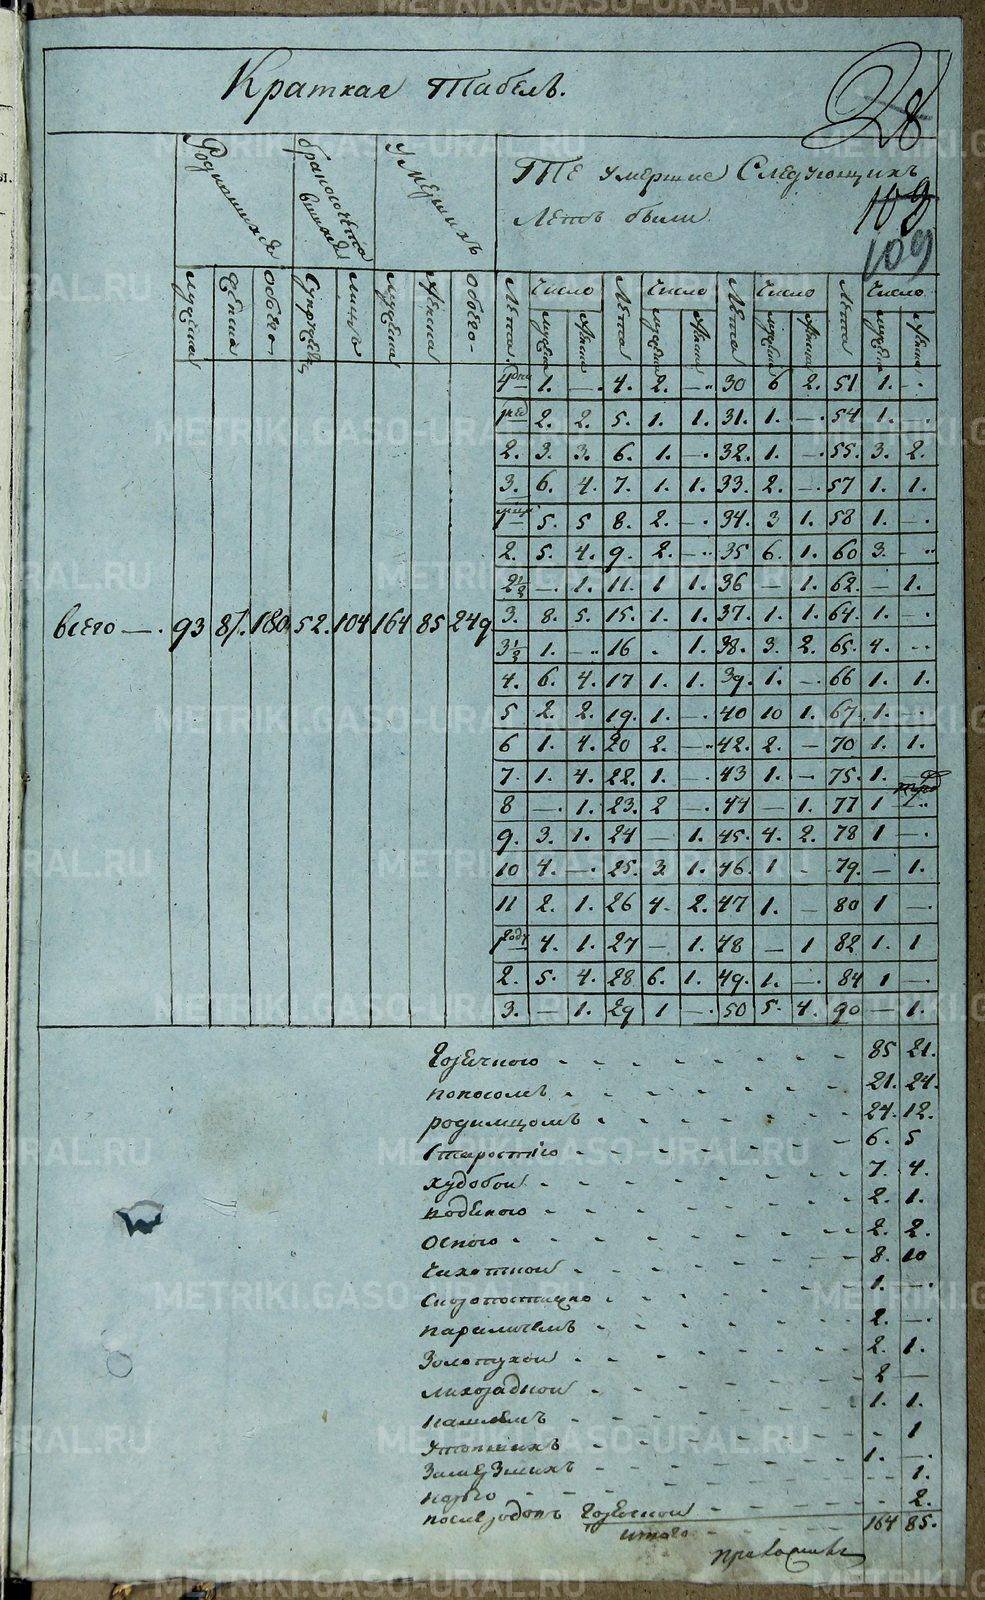 Краткая табель.
28
Родившихся
бракосочетавшихся
Умерших
Те умершие следующихъ
летъ были
109
109
мужеска
женска
обоего
супружествъ
лицъ
мужеска
женска
обоего
Лета
Число
Лета
Число
Лета
Число
Лета
Число
мужеска
женска
мужеска
женска
мужеска
женска
мужеска
женска
1. —. 4. 2. —. 30 6 2. 51 1. —.
2. 2. 5. 1. 1. 31. 1. —. 54 1. —.
2. 3. 3. 6. 1. —. 32. 1. —. 55. 3. 2.
3. 6. 4. 7. 1. 1. 33. 2. —. 57 1. 1.
5. 5 8. 2. —. 34. 3 1. 58 1. —.
2. 5. 4. 9. 2. —. 35 6. 1. 60 3. —
2½ —. 1. 11. 1 1. 36 — 1. 62. — 1.
всего —. 93 87. 180. 52. 104 164 85 249
3. 8. 5. 15. 1. 1. 37. 1. 1. 64. 1. —.
3½ 1. — 16 . 1. 38. 3. 2. 65. 4. —
4. 6. 4. 17 1. 1. 39. 1. —. 66 1. 1.
5 2. 2. 19. 1. —. 40 10 1. 67. 1. —
6 1. 4. 20 2. — 42. 2. — 70 1. 1.
7. 1. 4. 22. 1. —. 43 1. — 75. 1.
8 —. 1. 23. 2 —. 44 — 1. 77 1 —
9. 3. 1. 24 — 1. 45. 4. 2. 78 1 —.
10 4. —. 25. 3. 1. 46. 1 - 79. — 1.
11 2. 1. 26 4. 2. 47 1. — 80 1 —.
1 году 4. 1. 27 — 1. 48 — 1 82 1. 1
2. 5. 4. 28 6. 1. 49. 1. —. 84 1 —.
3. — 1. 29 1 —. 50 5. 4. 90 — 1.
горячкою 85 21.
поносомъ 21. 24.
родимцомъ 24. 12.
старостію 6. 5
худобой 7. 4.
водяною 2. 1.
оспою 2. 2.
чихоткой 8. 10
скоропостижно 1. —.
параличемъ 2. —.
золотухой 2. 1.
лихорадкой 2 —
камнемъ 1. 1.
утопшихъ 1
замерзшихъ 1. —.
1.
после родовъ горячкой 2.
итого 164 85.
METRIKI.GASO-URAL.RU